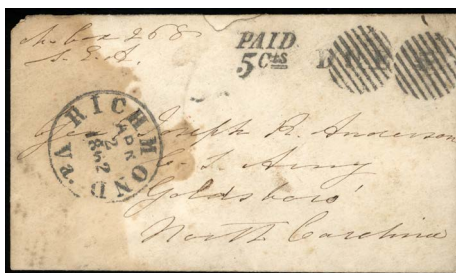 PAID
5 Cts
DUE
RICHMOND Va.
APR
2
1862
Gen Joseph R. Anderson
C. S. Army
Goldsboro'
North Carolina